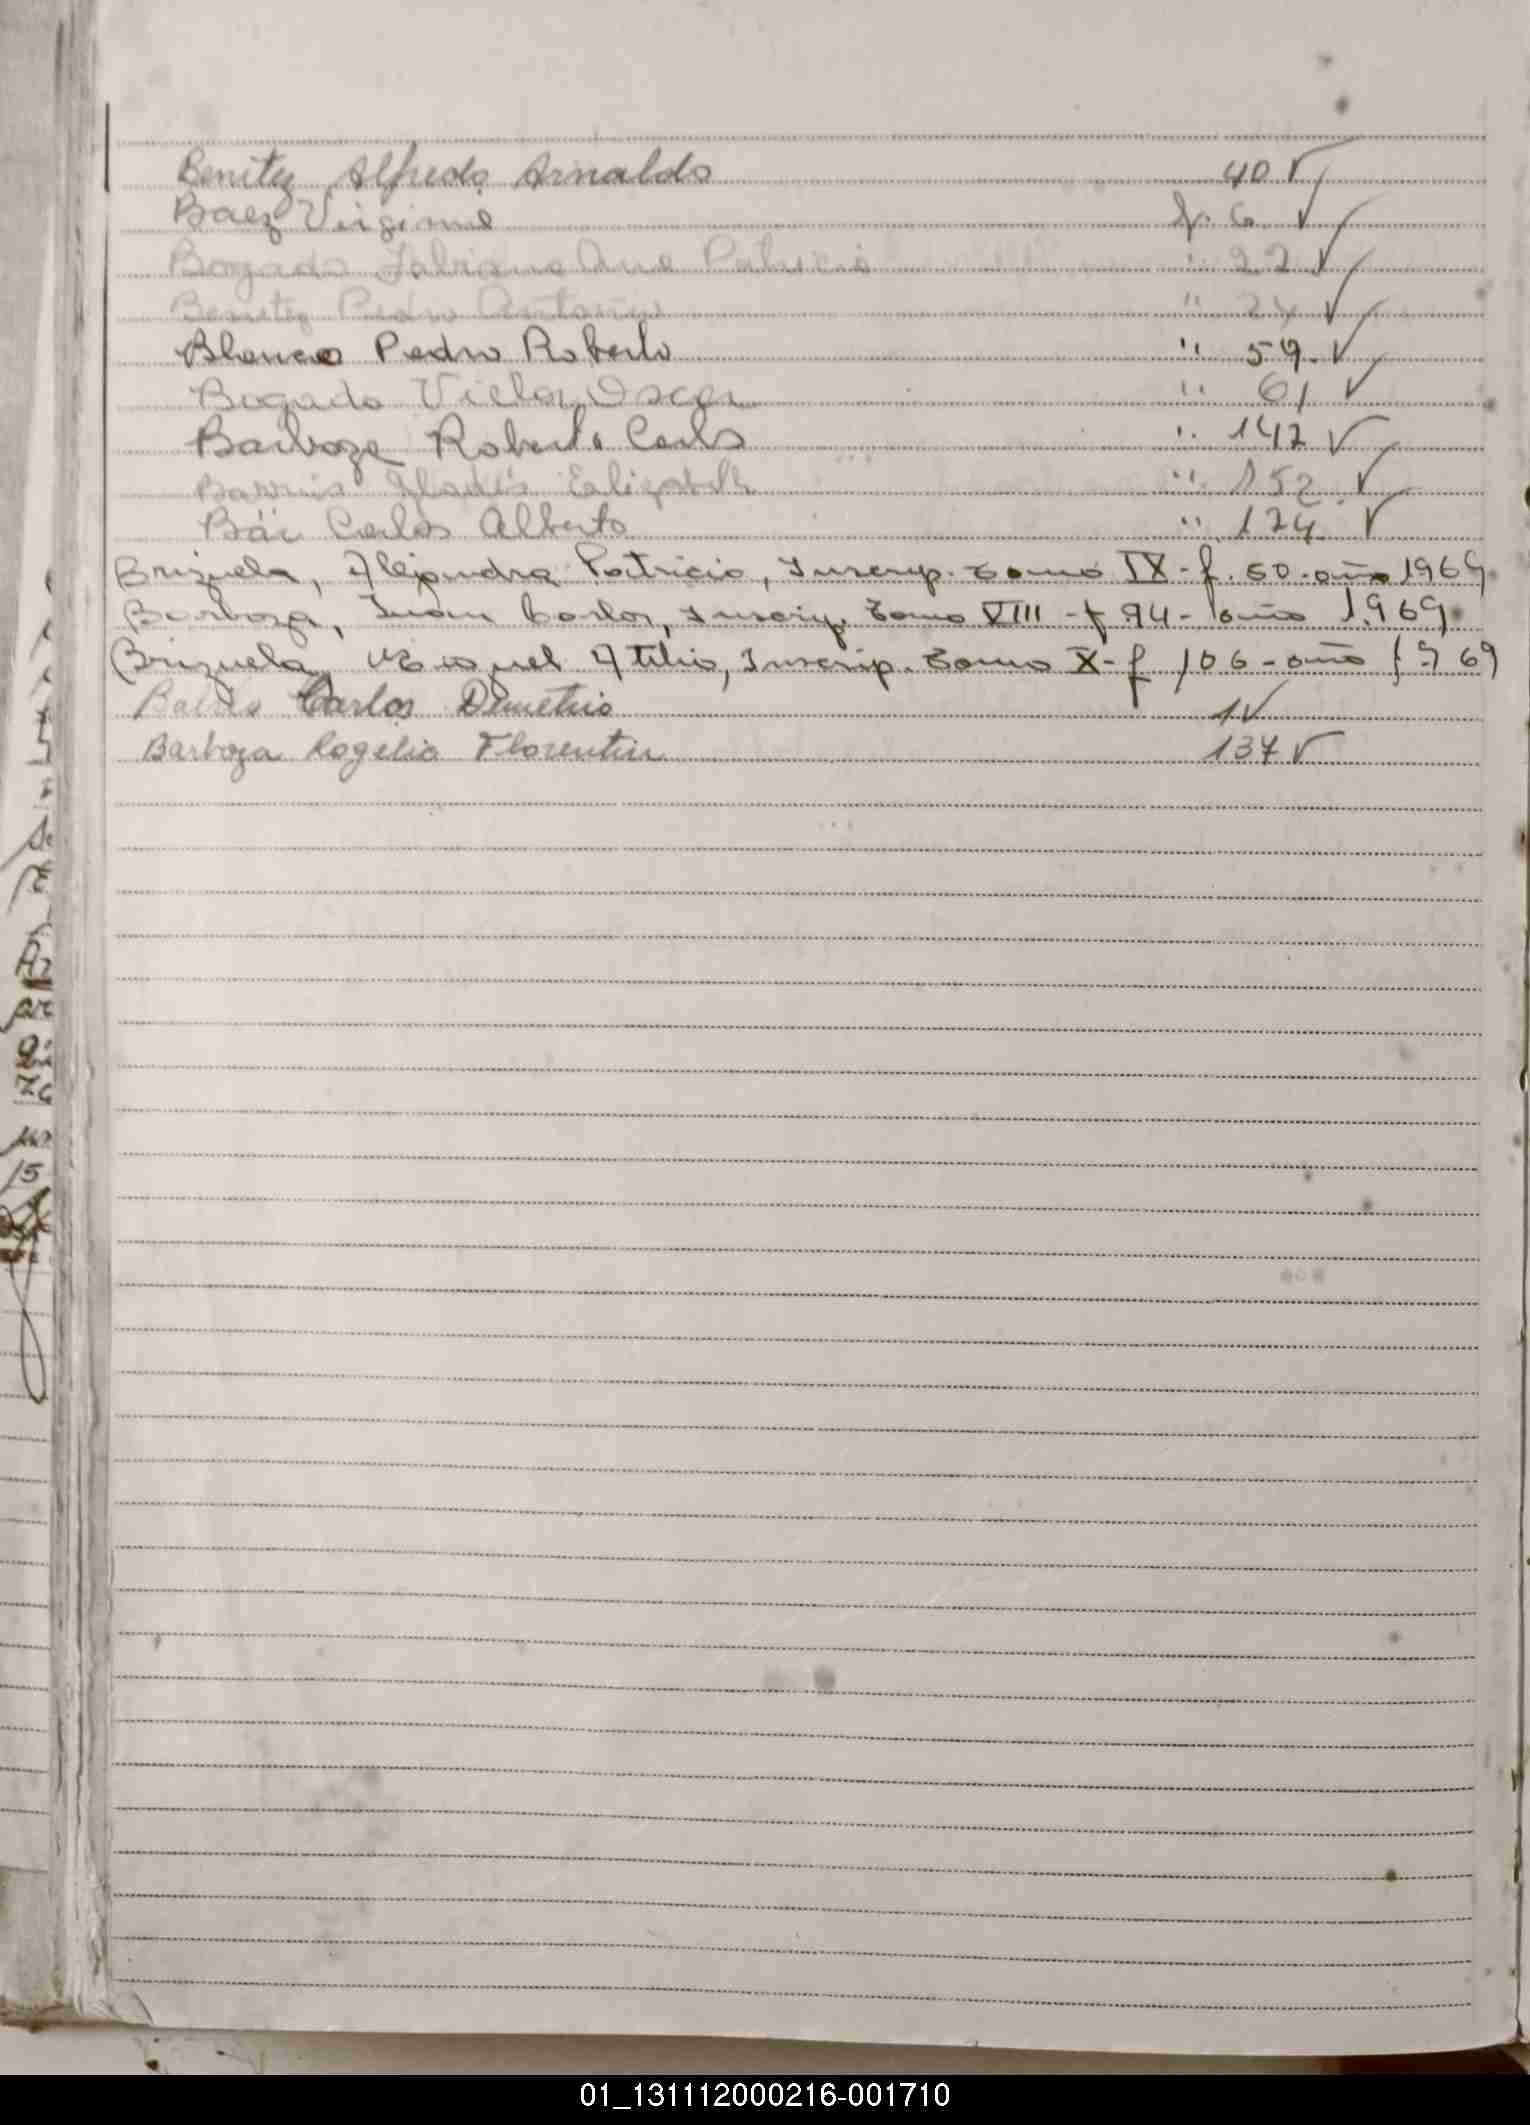 Benitez Alfredo Arnaldo 40 ✓
Baez Virginia f. 6 ✓
Bogado Fabiana Ana Patricia " 22 ✓
Benitez Pedro Antonio " 24 ✓
Blanco Pedro Roberto " 59. ✓
Bogado Victor Oscar " 61 ✓
Barboza Roberto Carlos " 142 ✓
Barrios Gladis Elizabeth " 152 ✓
Báez Carlos Alberto " 174 ✓
Brizuela, Alejandra Patricia, Inscrip. tomo IX - f. 50 - año 1969
Barboza, Juan Carlos, Inscrip. tomo VIII - f 94 - año 1.969
Brizuela, Atilio, Inscrip. tomo X - f 106 - año 1969
Carlos Demetrio 1 ✓
Barboza Rogelio Florentin 137 ✓
15
01_131112000216-001710